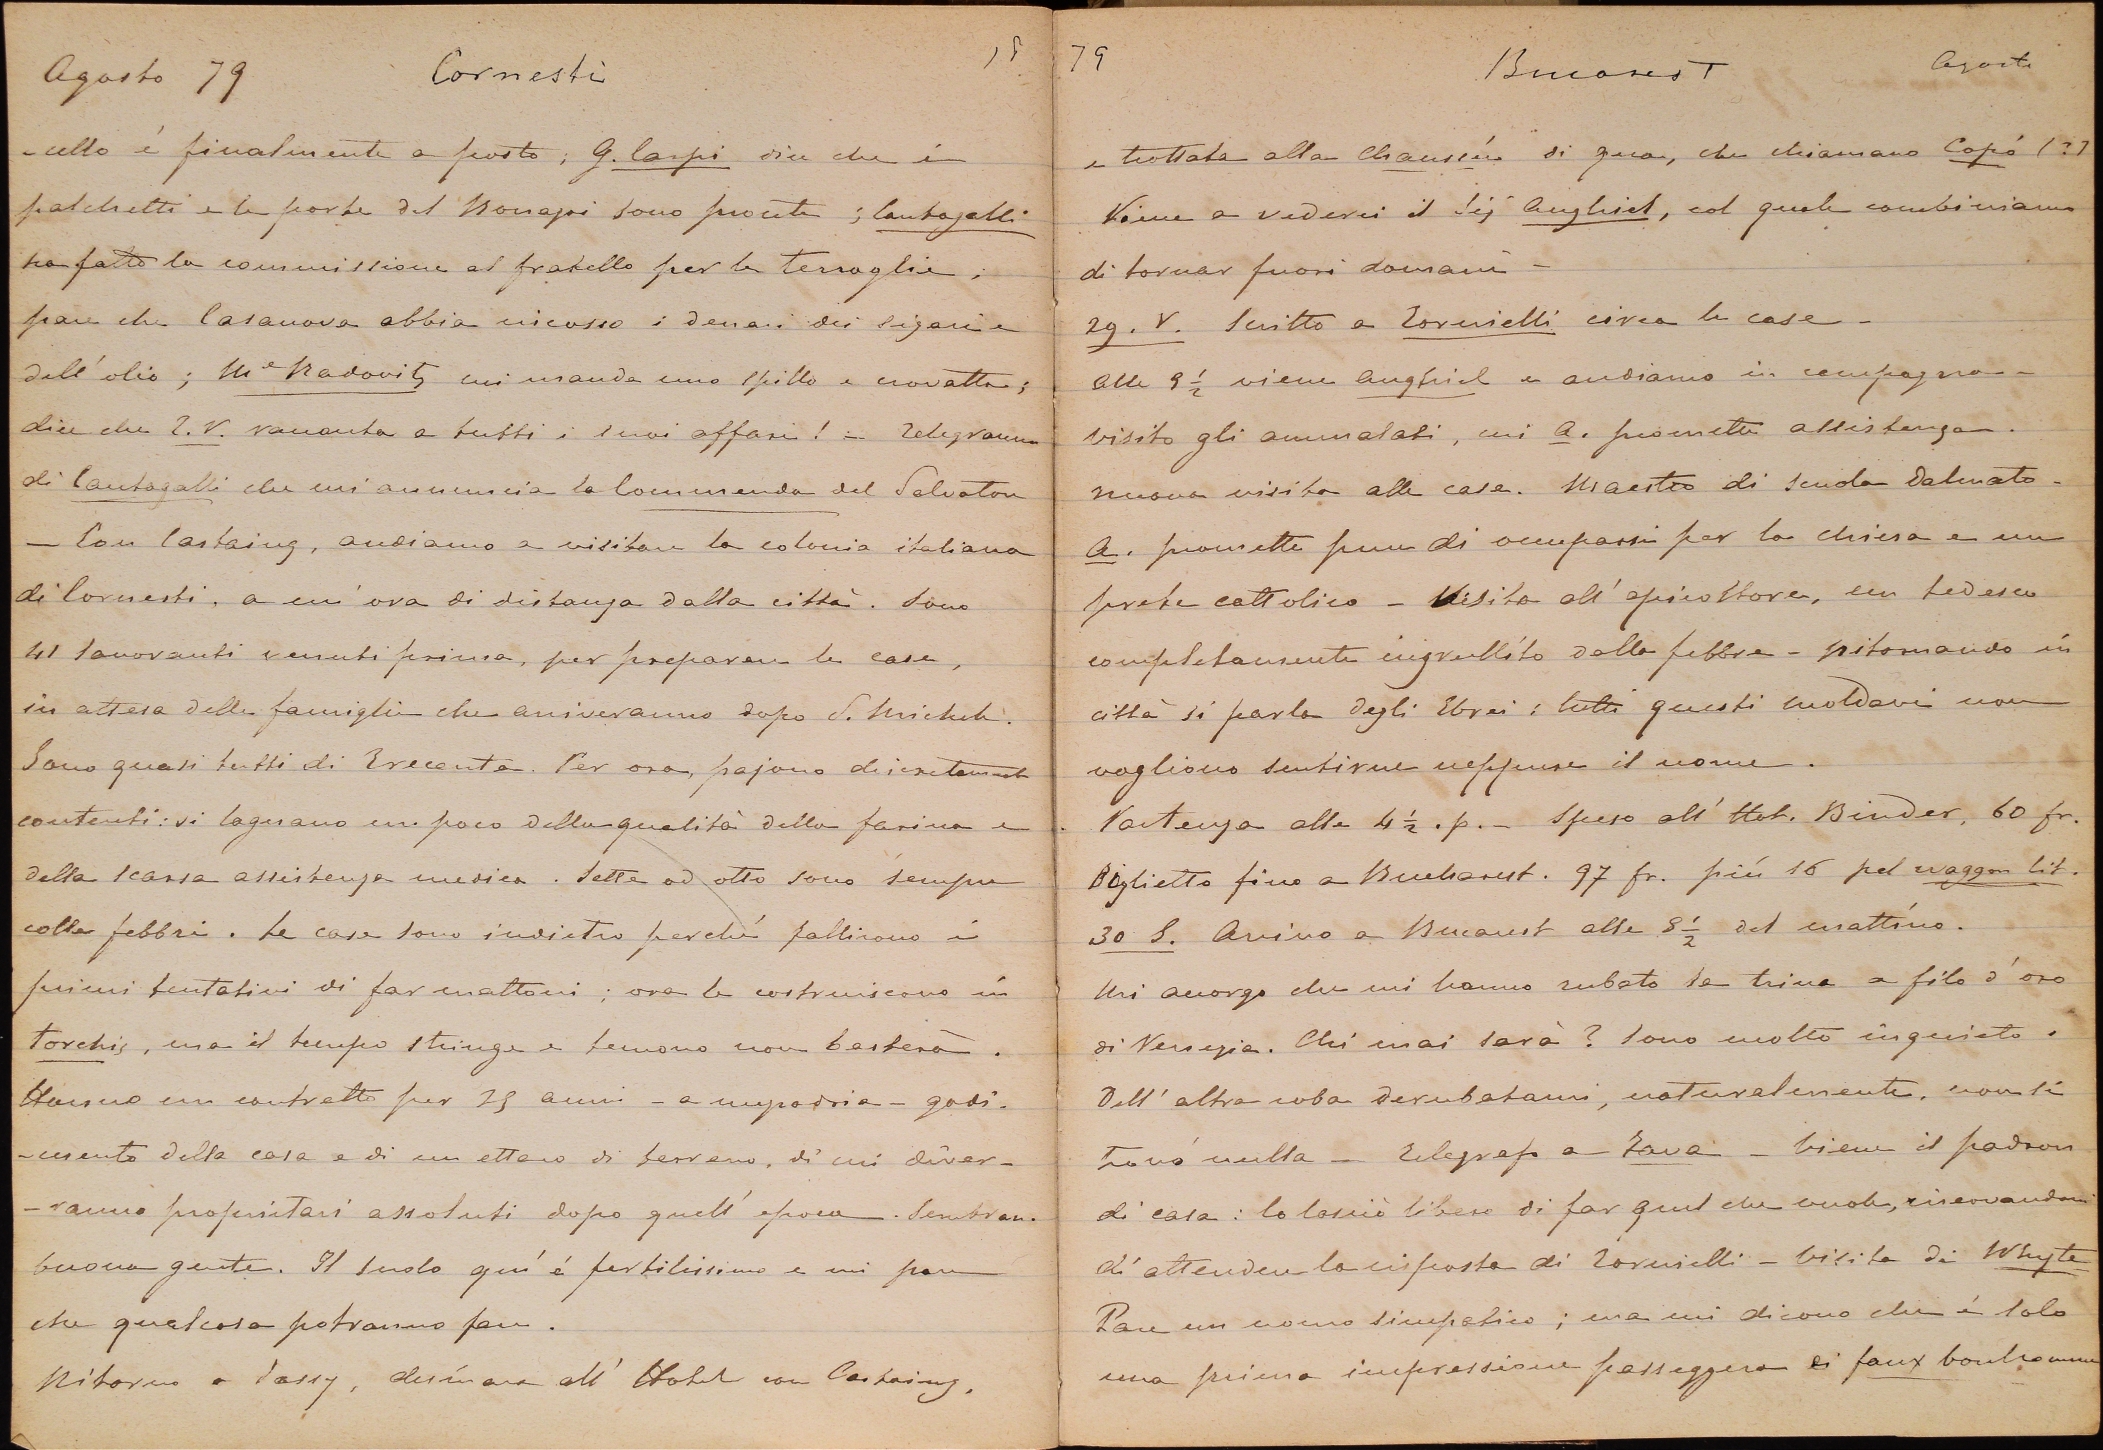 Agosto 79 Cornesti 18
-cello é finalmente a posto; G. Carpi dice che i
palchetti e le porte del Bonajoi sono pronte; Cantagalli
ha fatto la commissione al fratello per le terraglie;
pare che Casanova abbia riscosso i denari dei sigari e
dell'olio; Me Radovitz mi manda uno spillo e cravatta;
dice che Z.V. racconta a tutti i suoi affari! - Telegramma
di Cantagalli che mi annuncia la Commenda del Salvatore
- Con Castaing, andiamo a visitare la colonia italiana
di Cornesti, a un'ora di distanza dalla città. Sono
41 lavoranti venuti prima, per preparare le case,
in attesa delle famiglie che arriveranno dopo S. Michele.
Sono quasi tutti di Trecenta. Per ora, pajono discretamente
contenti: si lagnano un poco della qualità della farina e
della scarsa assistenza medica. Sette od otto sono sempre
colle febbri. Le case sono indietro perché fallirono i
primi tentativi di far mattoni; ora le costruiscono in
torchis, ma il tempo stringe e temono non basterà.
Hanno un contratto per 25 anni - a mezzadria - godi-
-mento della casa e di un ettaro di terreno, di cui diver-
-ranno proprietari assoluti dopo quell'epoca. Sembran
buona gente. Il suolo quí é fertilissimo e mi pare
che qualcosa potranno fare.
Ritorno a Jassy, desinare all'Hotel con Castaing,
79 Bucarest Agosto
e trottata alla Chaussée di qua, che chiamano Copó (?)
Viene a vederci il Sigr Anghiel, col quale combiniamo
di tornar fuori domani -
29. V. Scritto a Tornielli circa le case -
Alle 9½ viene Anghiel e andiamo in campagna -
visito gli ammalati, cui A. promette assistenza.
nuova visita alle case. Maestro di scuola Dalmato -
A. promette pure di occuparsi per la chiesa e un
prete cattolico - Visita all'apicoltore, un tedesco
completamente ingrullito dalla febbre - ritornando in
città si parla degli Ebrei: tutti questi moldavi non
vogliono sentirne neppure il nome.
Partenza alle 4½ .p. - Speso all'Hot. Binder, 60 fr.
Biglietto fino a Bucharest. 97 fr. piú 16 pel waggon lit.
30 S. Arrivo a Bucarest alle 8½ del mattino.
Mi accorgo che mi hanno rubato la trina a filo d'oro
di Venezia. Chi mai sarà? Sono molto inquieto.
Dell'altra roba derubatami, naturalmente, non si
trovó nulla - Telegrafo a Zava - Viene il padron
di casa: lo lascio libero di far quel che vuole, riservandomi
di attendere la risposta di Tornielli - Visita di Whyte -
Pare un uomo simpatico; ma mi dicono che é solo
una prima impressione passeggera di faux bonhomme